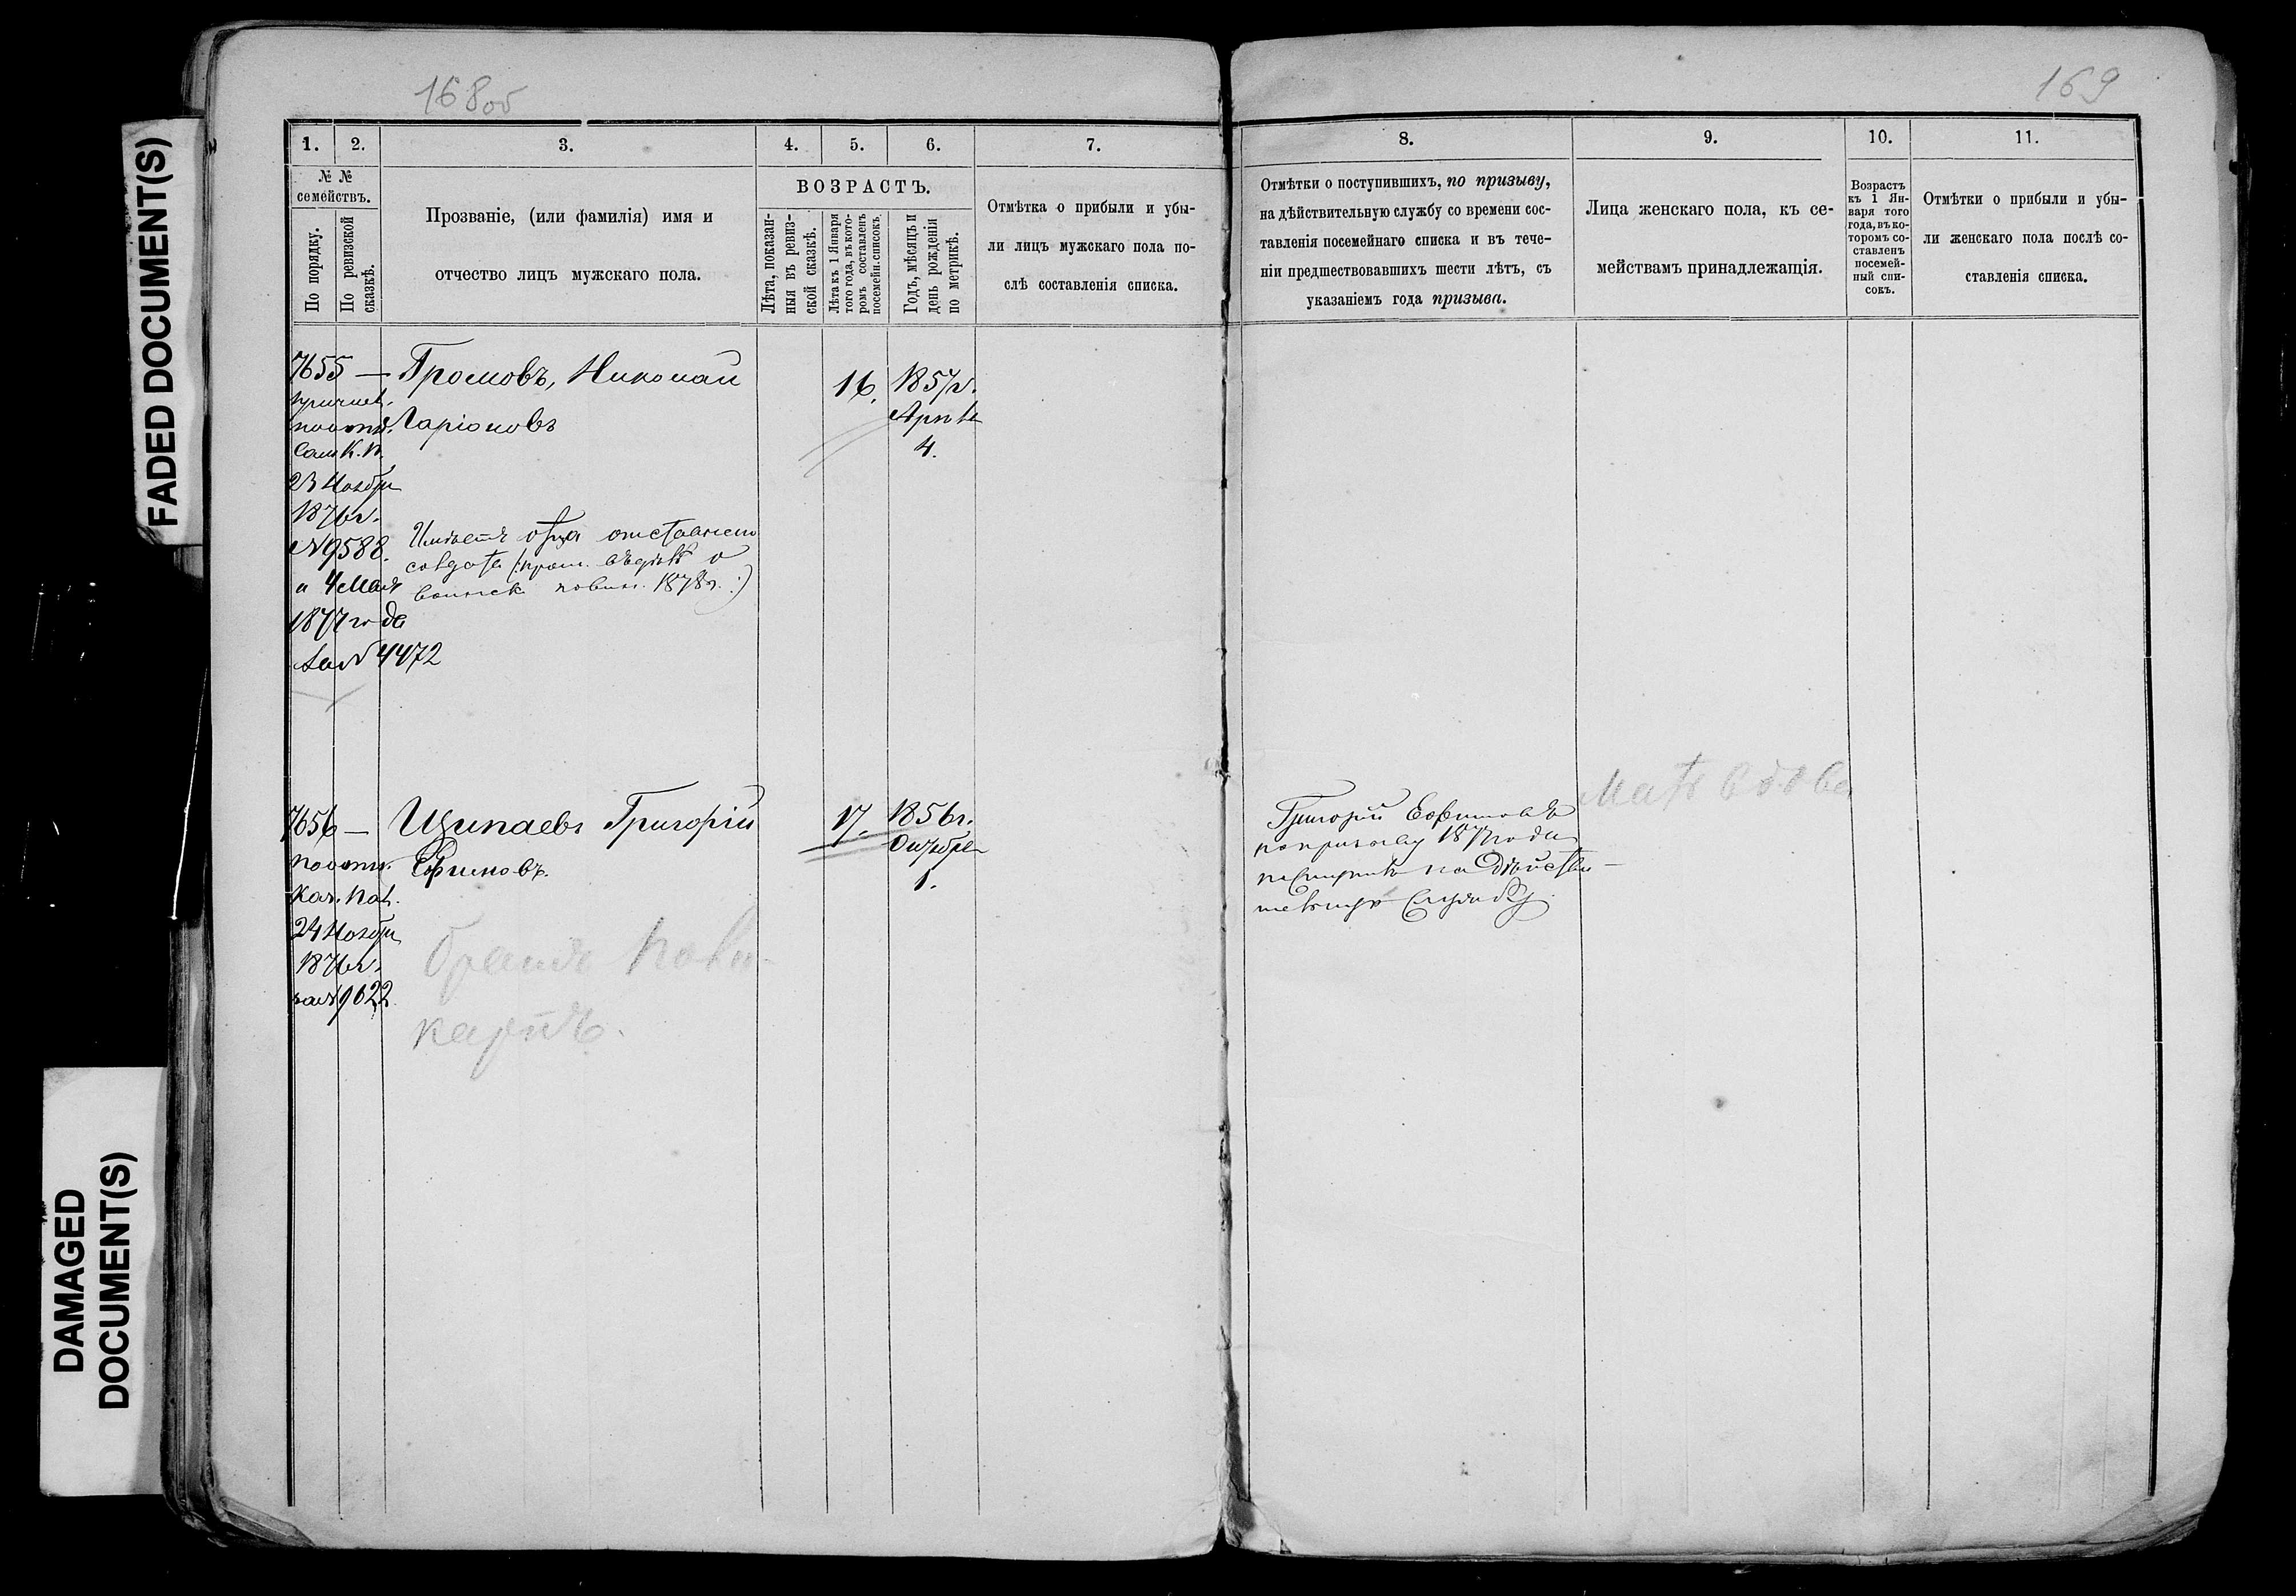 FADED DOCUMENT(S)
DAMAGED
DOCUMENT(S)
168об
1. 2. 3. 4. 5. 6. 7.
№ №
семействъ.
По порядку.
По ревизской
сказкѣ.
Прозваніе, (или фамилія) имя и
отчество лицъ мужскаго пола.
ВОЗРАСТЪ.
Лѣта, показан-
ныя въ ревиз-
ской сказкѣ.
Лѣта къ 1 Января
того года, въ кото-
ромъ составленъ
посемейн. списокъ.
Годъ, мѣсяцъ и
день рожденія
по метрикѣ.
Отмѣтка о прибыли и убы-
ли лицъ мужскаго пола по-
слѣ составленія списка.
7655 — Громовъ, Николай 16. 1857г.
причисл.
Ларіоновъ Апрѣл
4.
К. П.
23 Ноября
1876г.
№ 9588.
и 4 Мая
1877 года
за № 4472
Имѣетъ отца отставного
солдата (: о
воинск повин. 1878г. :)
7656 — Щипаевъ Григорій 17. 1856г.
Ефимовъ. Октября
1.
Каз. Пал.
24 Ноября
1876г.
за № 9622
169
8. 9. 10. 11.
Отмѣтки о поступившихъ, по призыву,
на дѣйствительную службу со времени сос-
тавленія посемейнаго списка и въ тече-
ніи предшествовавшихъ шести лѣтъ, съ
указаніемъ года призыва.
Лица женскаго пола, къ се-
мействамъ принадлежащія.
Возрастъ
къ 1 Ян-
варя того
года, въ ко-
торомъ со-
ставленъ
посемей-
ный спи-
сокъ.
Отмѣтки о прибыли и убы-
ли женскаго пола послѣ со-
ставленія списка.
Мать вдова
Григорій Ефимовъ
по призыву 1877 года
поступилъ на дѣйстви-
тельную службу